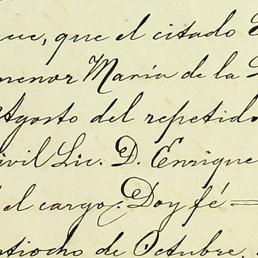 que, que el citado E
menor María de la
Agosto del repetido
civil Lic. D. Enrique
el cargo. Doy fé
ntiocho de Octubre,